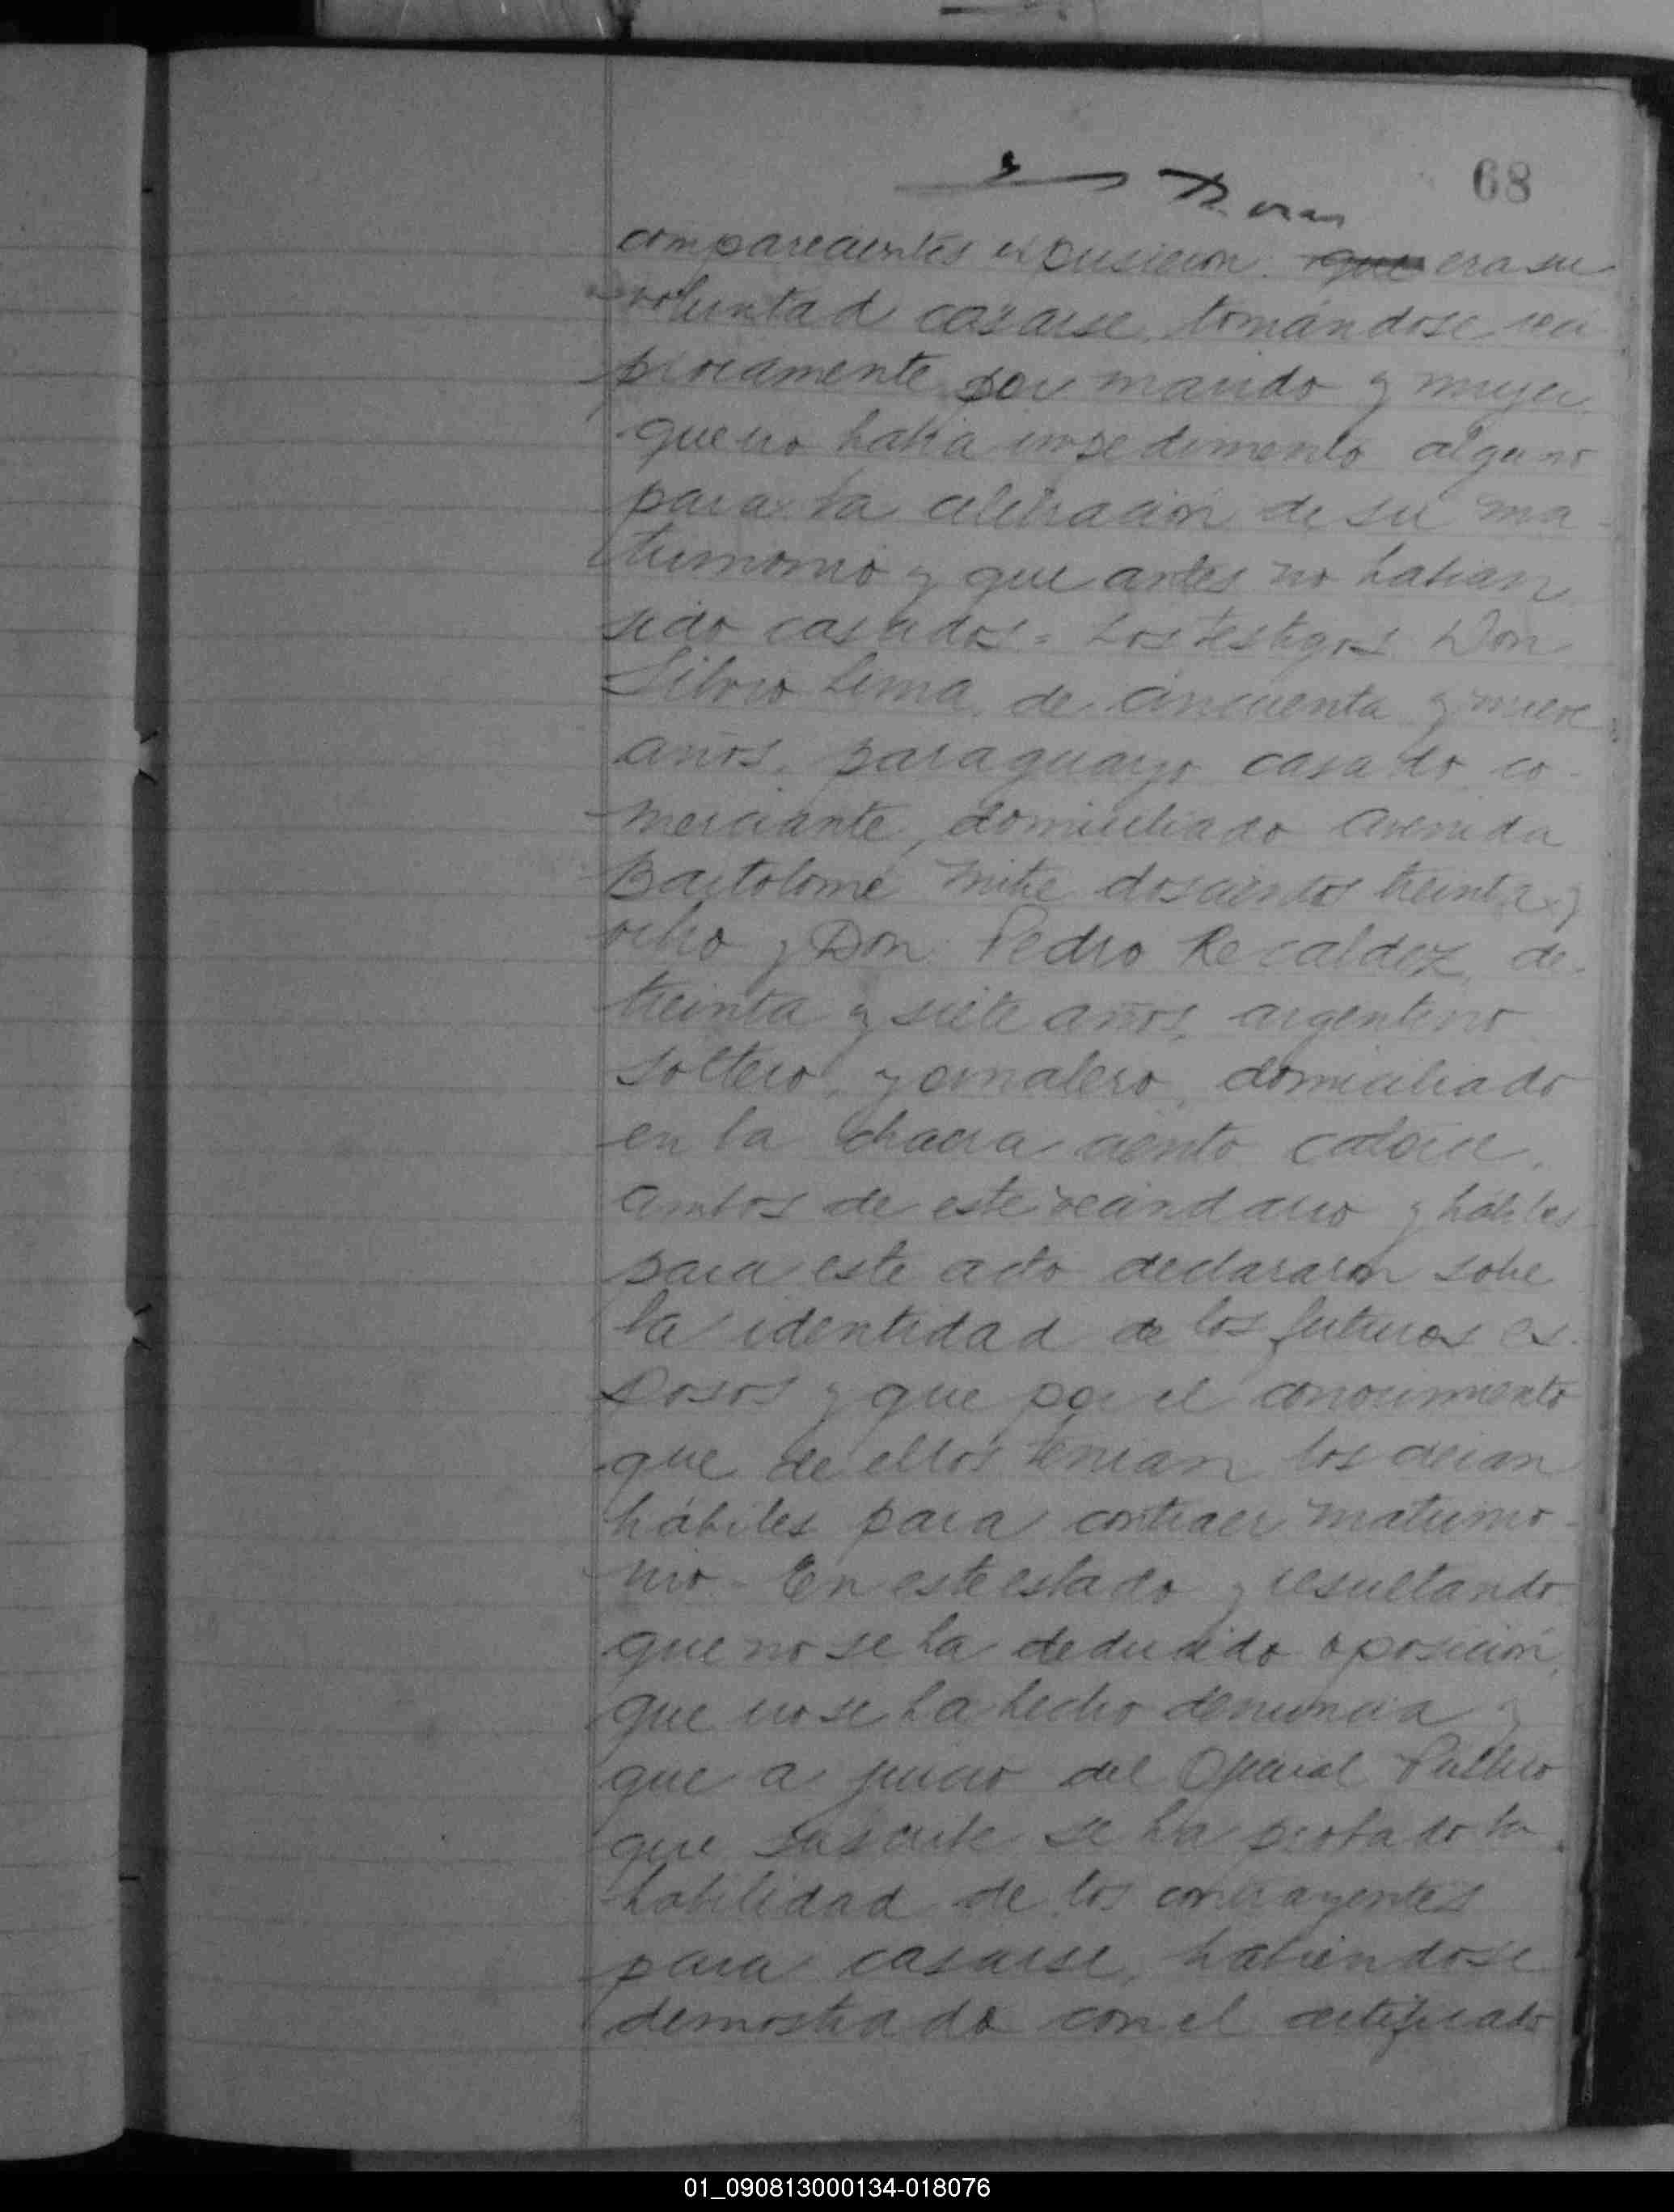 68
comparecientes expusieron que era su
voluntad casarse, tomándose reci
procamente por marido y mujer,
que no habia impedimento alguno
para la celebración de su ma-
trimonio y que antes no habian
sido casados = Los testigos Don
Silvio Lima, de cincuenta y nueve
años, paraguayo casado co-
merciante, domiciliado Avenida
Bartolomé Mitre doscientos treinta y
ocho y Don Pedro Recaldez, de
treinta y siete años, argentino
soltero, yornalero, domiciliado
en la chacra ciento catorce,
ambos de este vecindario y hábiles
para este acto declararon sobre
la identidad de los futuros es-
posos y que por el conocimiento
que de ellos tenian los creian
hábiles para contraer matrimo-
nio - En este estado y resultando
que no se ha deducido oposición,
que no se ha hecho denuncia y
que a juicio del Oficial Público
que suscribe se ha probado la
habilidad de los contrayentes
para casarse, habiendose
demostrado con el certificado
01_090813000134-018076